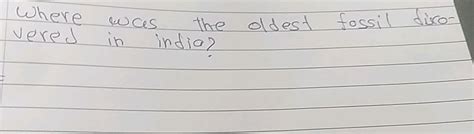 Where was the oldest fossil disco-
vered in india?